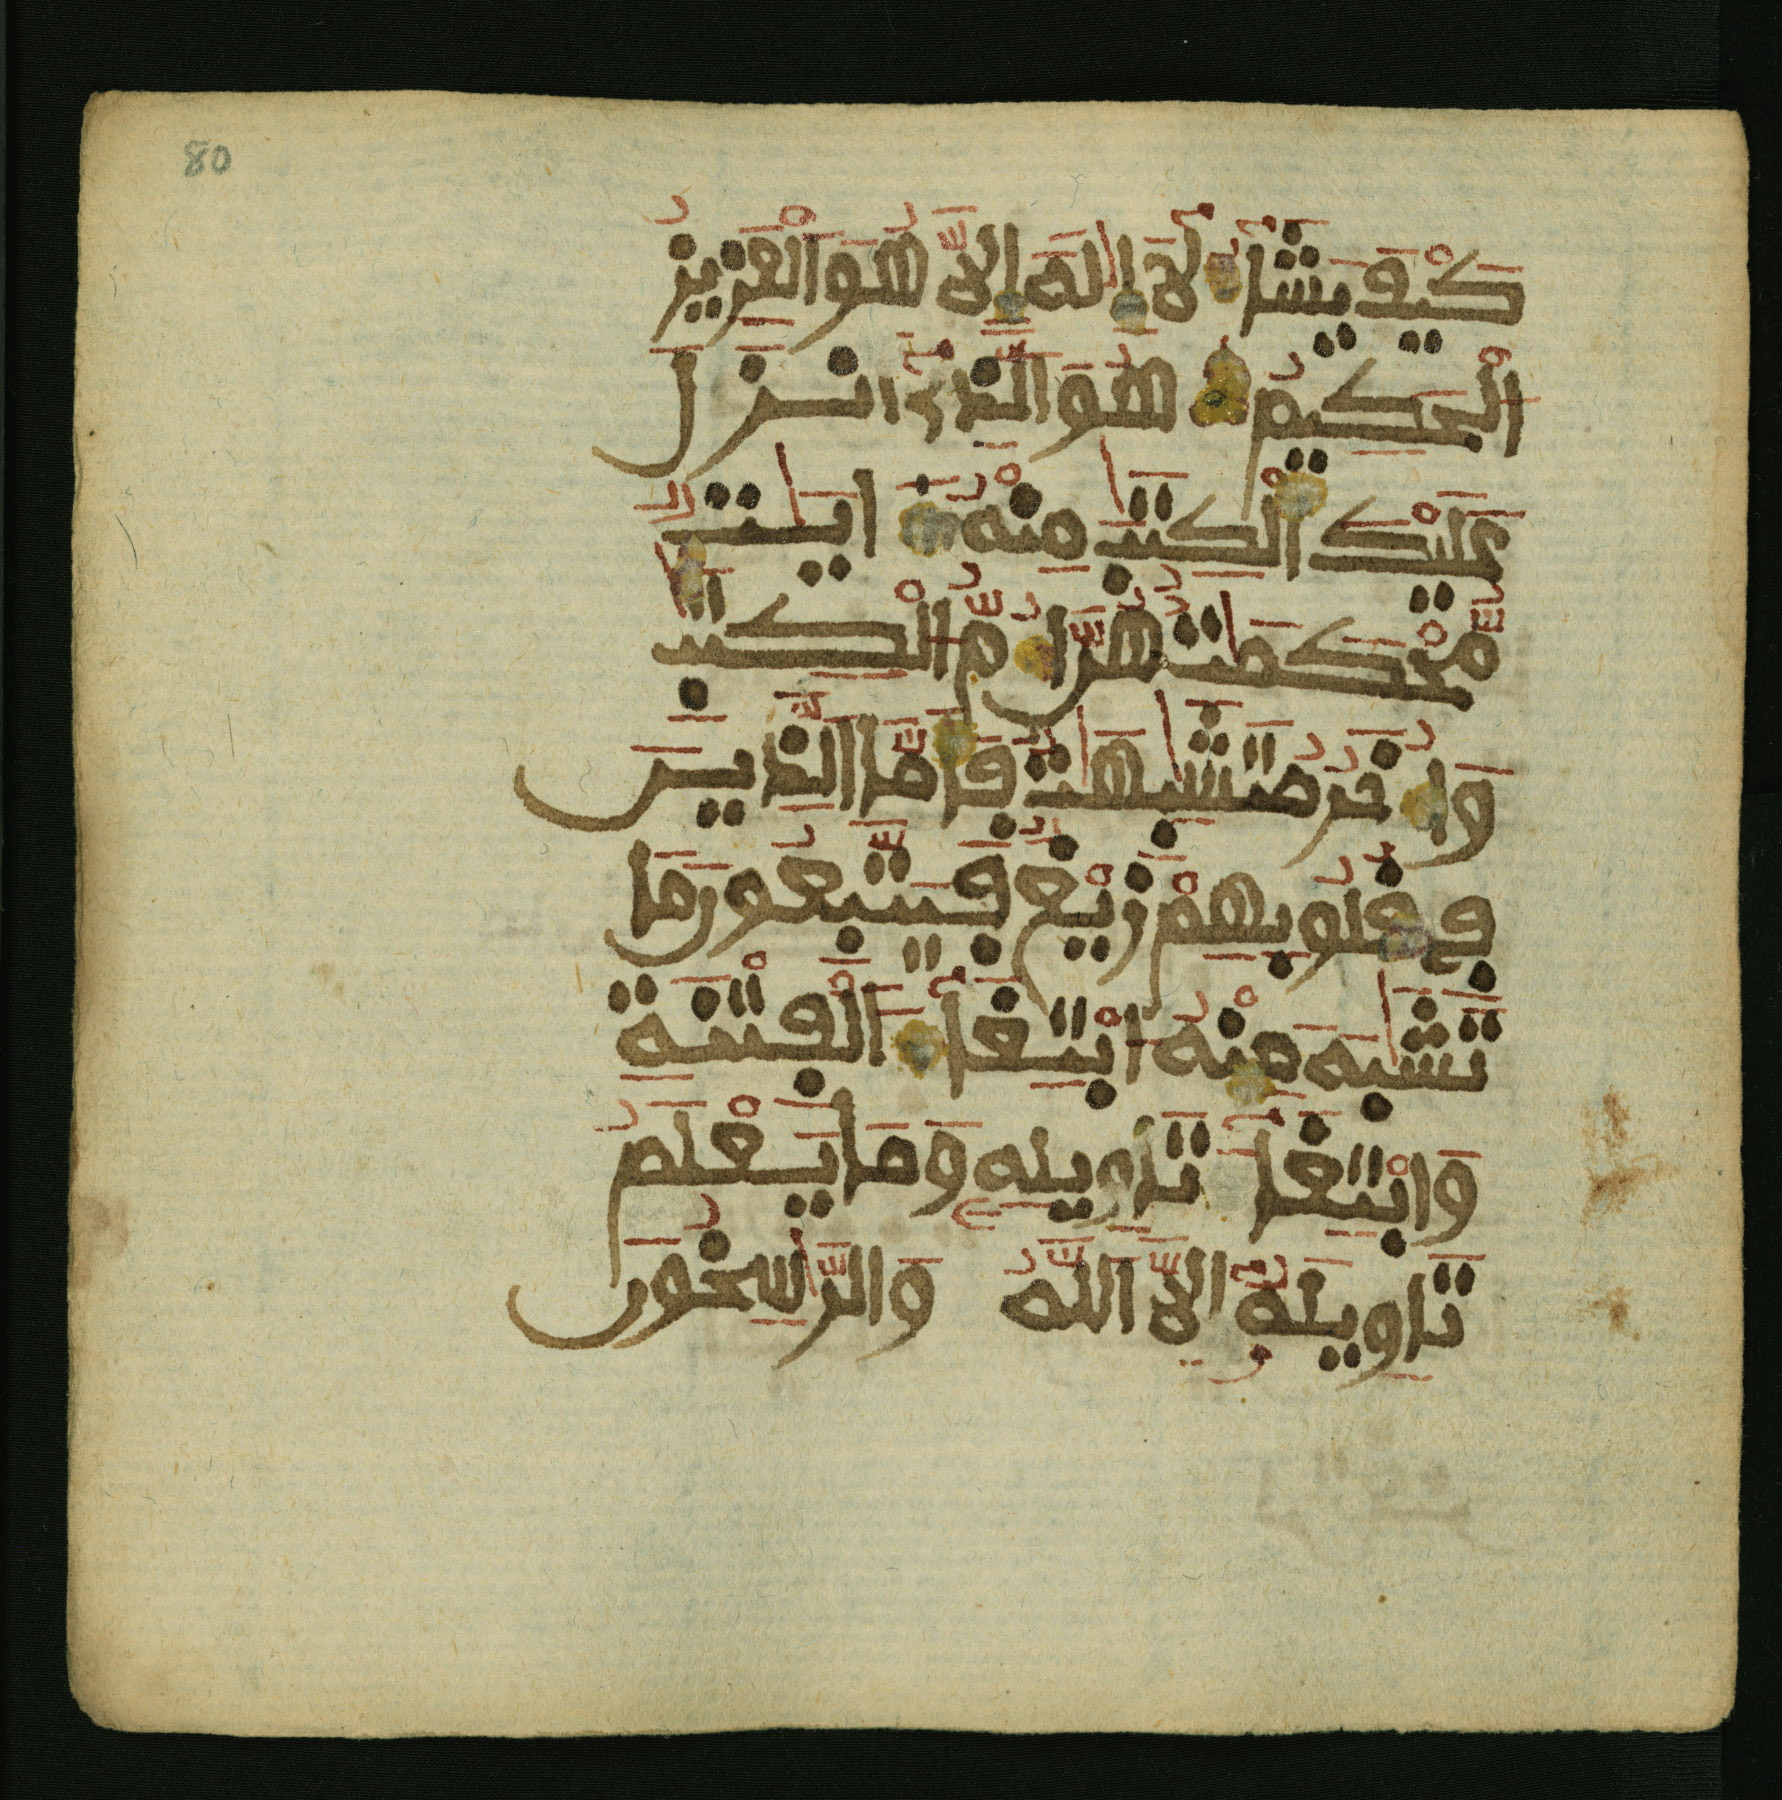 80
كَيْفَ يَشَآءُ لَآ إِلَٰهَ إِلَّا هُوَ الْعَزِيزُ
الْحَكِيمُ هُوَ الَّذِےٓ أَنزَلَ
عَلَيْكَ الْكِتَٰبَ مِنْهُ ءَايَٰتٌ
مُّحْكَمَٰتٌ هُنَّ أُمُّ الْكِتَٰبِ
وَأُخَرُ مُتَشَٰبِهَٰتٌ فَأَمَّا الَّذِينَ
فِے قُلُوبِهِمْ زَيْغٌ فَيَتَّبِعُونَ مَا
تَشَٰبَهَ مِنْهُ ابْتِغَآءَ الْفِتْنَةِ
وَابْتِغَآءَ تَاوِيلِهِ وَمَا يَعْلَمُ
تَاوِيلَهُۥٓ إِلَّا اللَّهُ وَالرَّٰسِخُونَ